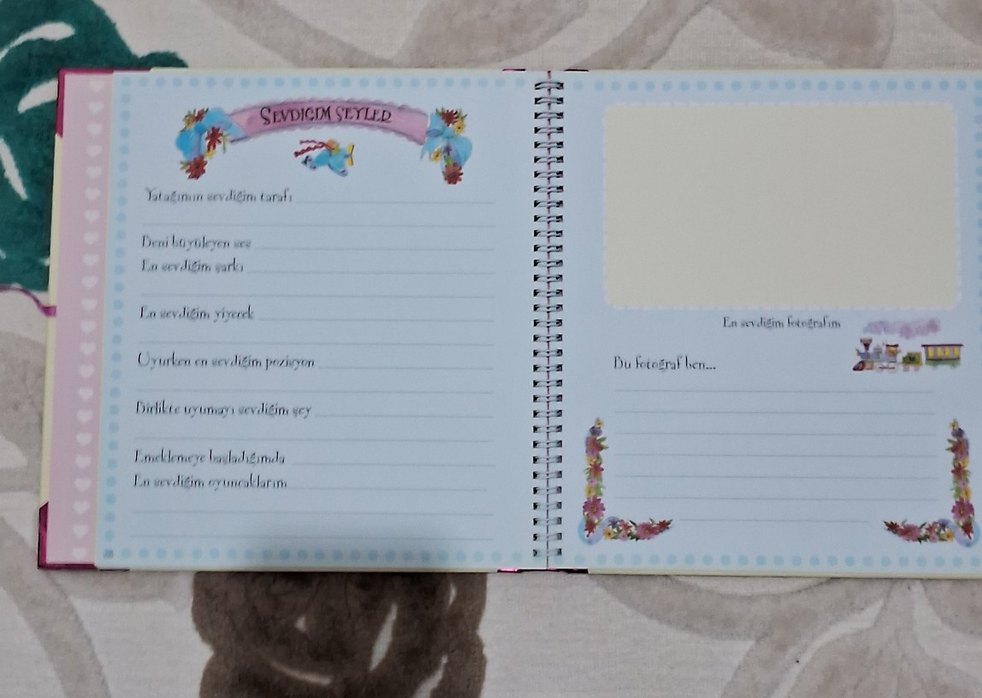 SEVDİĞİM ŞEYLER
Yatağımın sevdiğim tarafı
Beni büyüleyen ses
En sevdiğim şarkı
En sevdiğim yiyecek
Uyurken en sevdiğim pozisyon
Birlikte uyumayı sevdiğim şey
Emeklemeye başladığımda
En sevdiğim oyuncaklarım
En sevdiğim fotoğrafım
Bu fotoğraf ben...